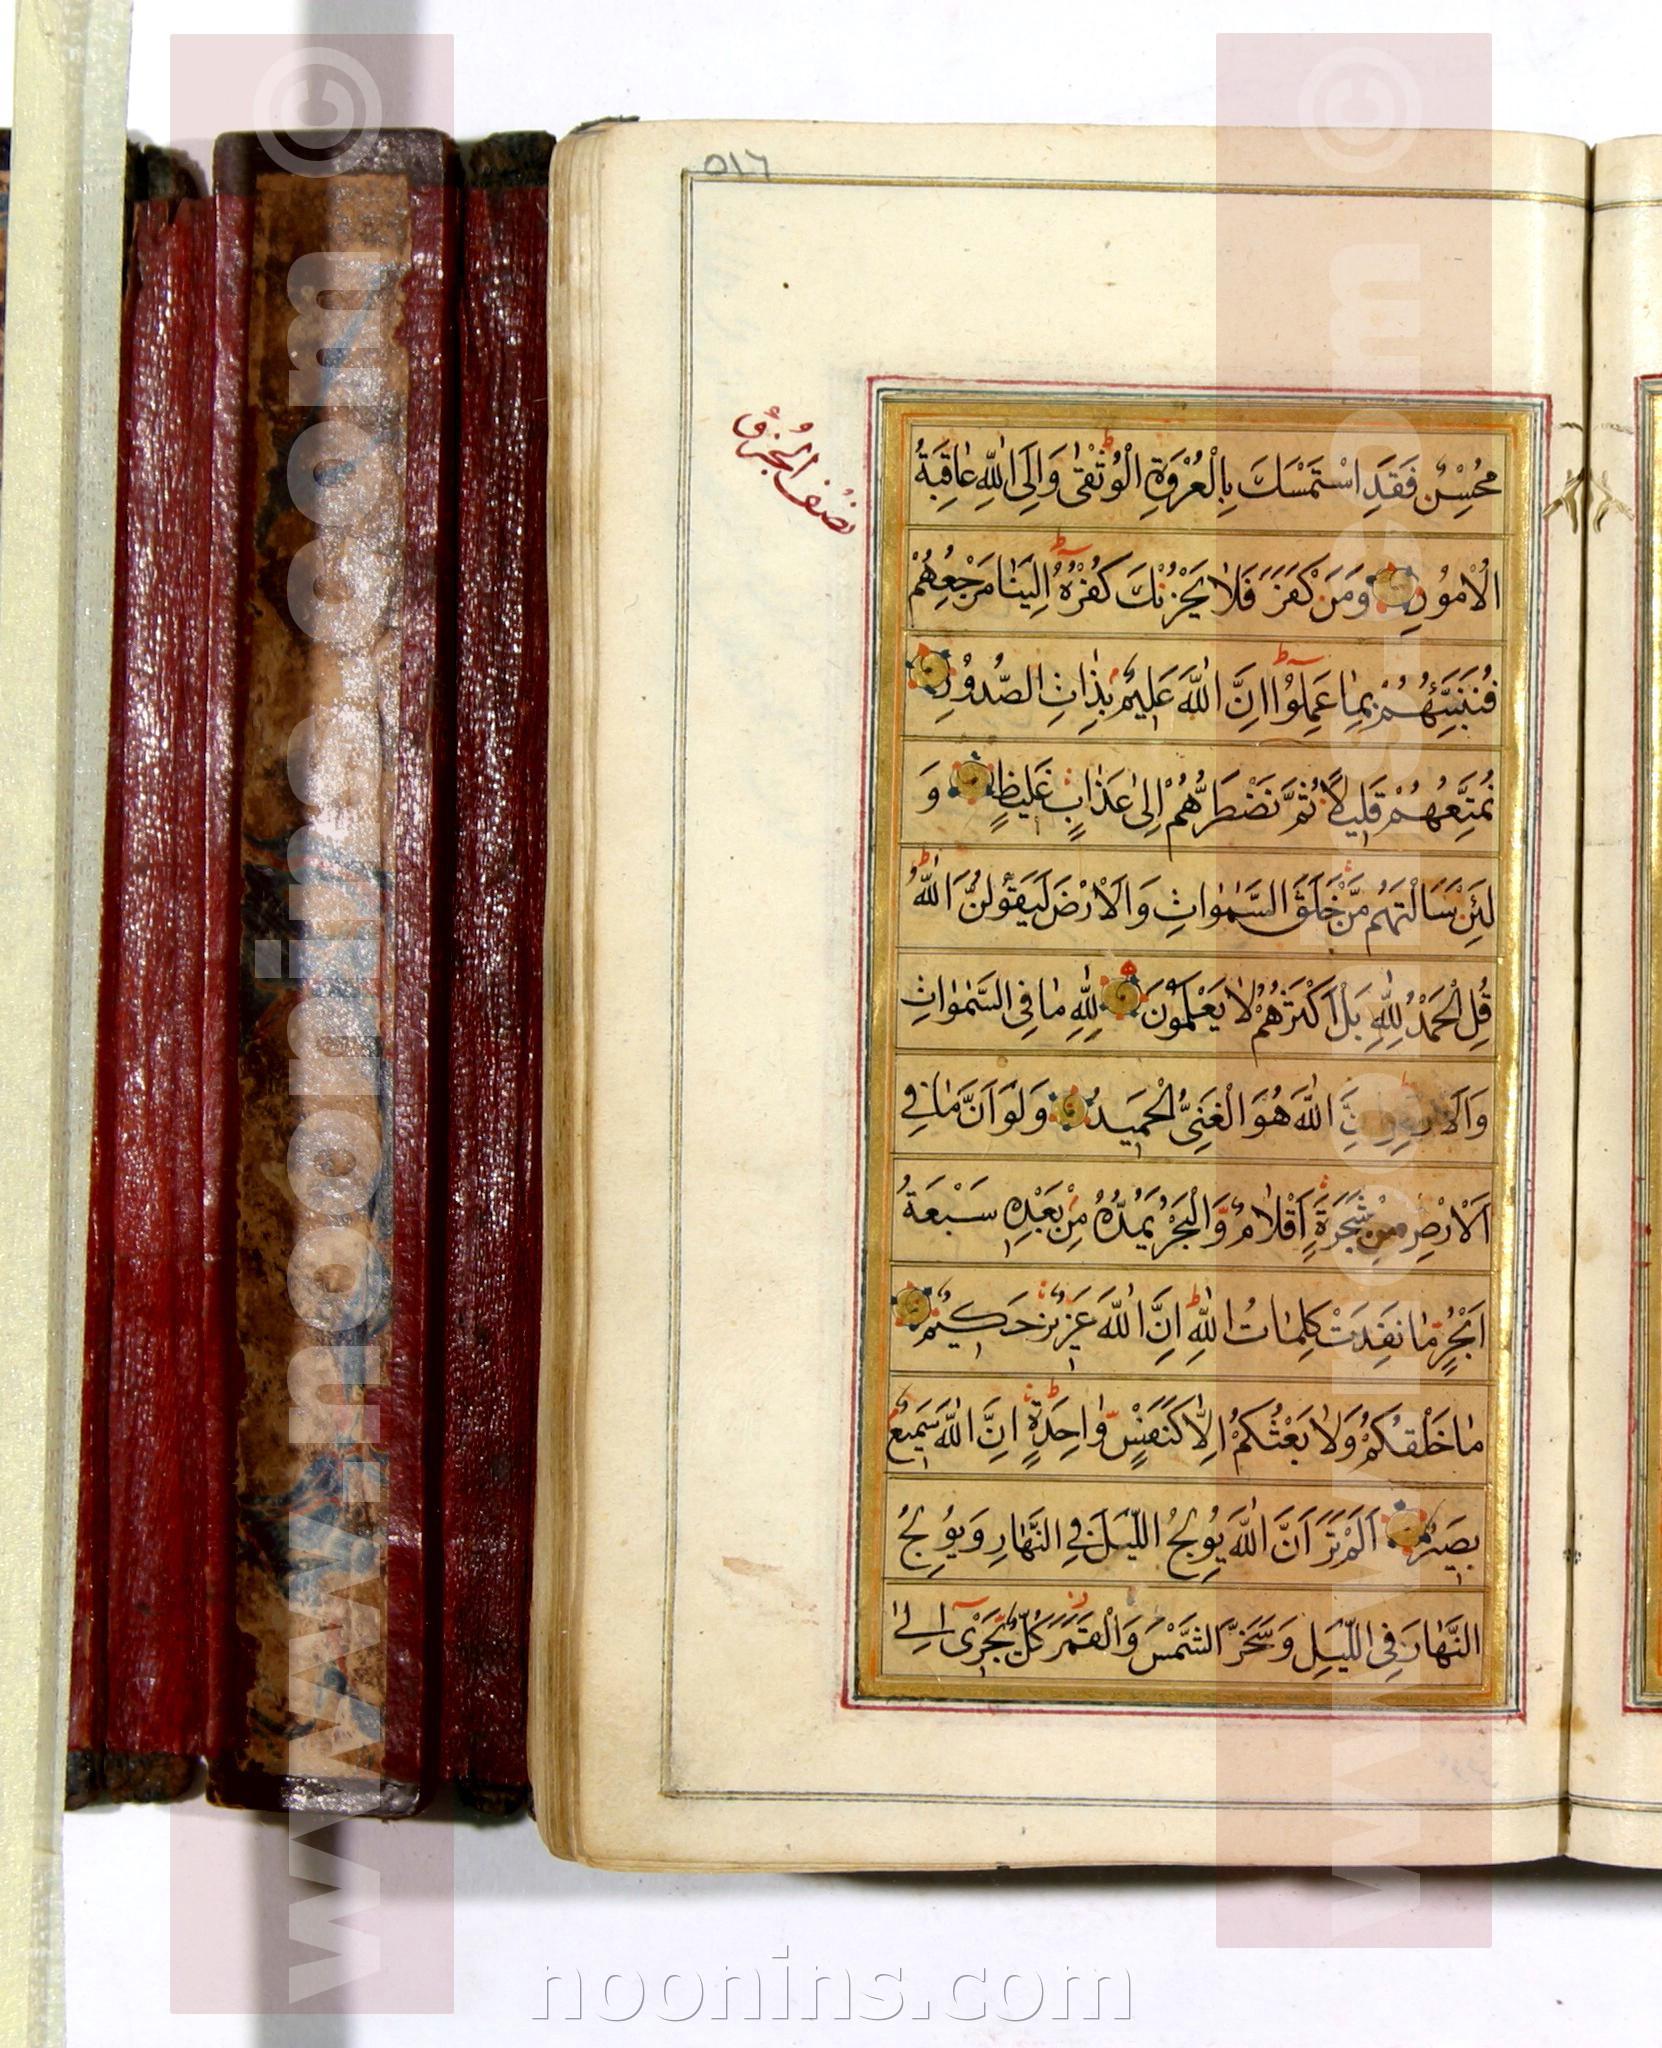 ٥١٦
نصف الجزؤ
مُحْسِنٌ فَقَدِ اسْتَمْسَكَ بِالْعُرْوَةِ الْوُثْقىٰ وَاِلَى اللّٰهِ عاٰقِبَةُ
الْاُمُورِ وَمَنْ كَفَرَ فَلاٰ يَحْزُنْكَ كُفْرُهُ اِلَيْناٰ مَرْجِعُهُمْ
فَنُنَبِّئُهُمْ بِماٰ عَمِلُوا اِنَّ اللّٰهَ عَلِيمٌ بِذاٰتِ الصُّدُورِ
نُمَتِّعُهُمْ قَلِيلًا ثُمَّ نَضْطَرُّهُمْ اِلىٰ عَذاٰبٍ غَلِيظٍ وَ
لَئِنْ سَاَلْتَهُمْ مَنْ خَلَقَ السَّمٰوٰاتِ وَالْاَرْضَ لَيَقُولُنَّ اللّٰهُ
قُلِ الْحَمْدُ لِلّٰهِ بَلْ اَكْثَرُهُمْ لاٰ يَعْلَمُونَ لِلّٰهِ ماٰ فِي السَّمٰوٰاتِ
وَالْاَرْضِ اِنَّ اللّٰهَ هُوَ الْغَنِيُّ الْحَمِيدُ وَلَوْ اَنَّ ماٰ فِي
الْاَرْضِ مِنْ شَجَرَةٍ اَقْلاٰمٌ وَالْبَحْرُ يَمُدُّهُ مِنْ بَعْدِهِ سَبْعَةُ
اَبْحُرٍ ماٰ نَفِدَتْ كَلِماٰتُ اللّٰهِ اِنَّ اللّٰهَ عَزِيزٌ حَكِيمٌ
ماٰ خَلْقُكُمْ وَلاٰ بَعْثُكُمْ اِلاّٰ كَنَفْسٍ وٰاحِدَةٍ اِنَّ اللّٰهَ سَمِيعٌ
بَصِيرٌ اَلَمْ تَرَ اَنَّ اللّٰهَ يُولِجُ اللَّيْلَ فِي النَّهاٰرِ وَيُولِجُ
النَّهاٰرَ فِي اللَّيْلِ وَسَخَّرَ الشَّمْسَ وَالْقَمَرَ كُلٌّ يَجْرِي اِلىٰ
www.noonins.com ©
www.noonins.com ©
noonins.com